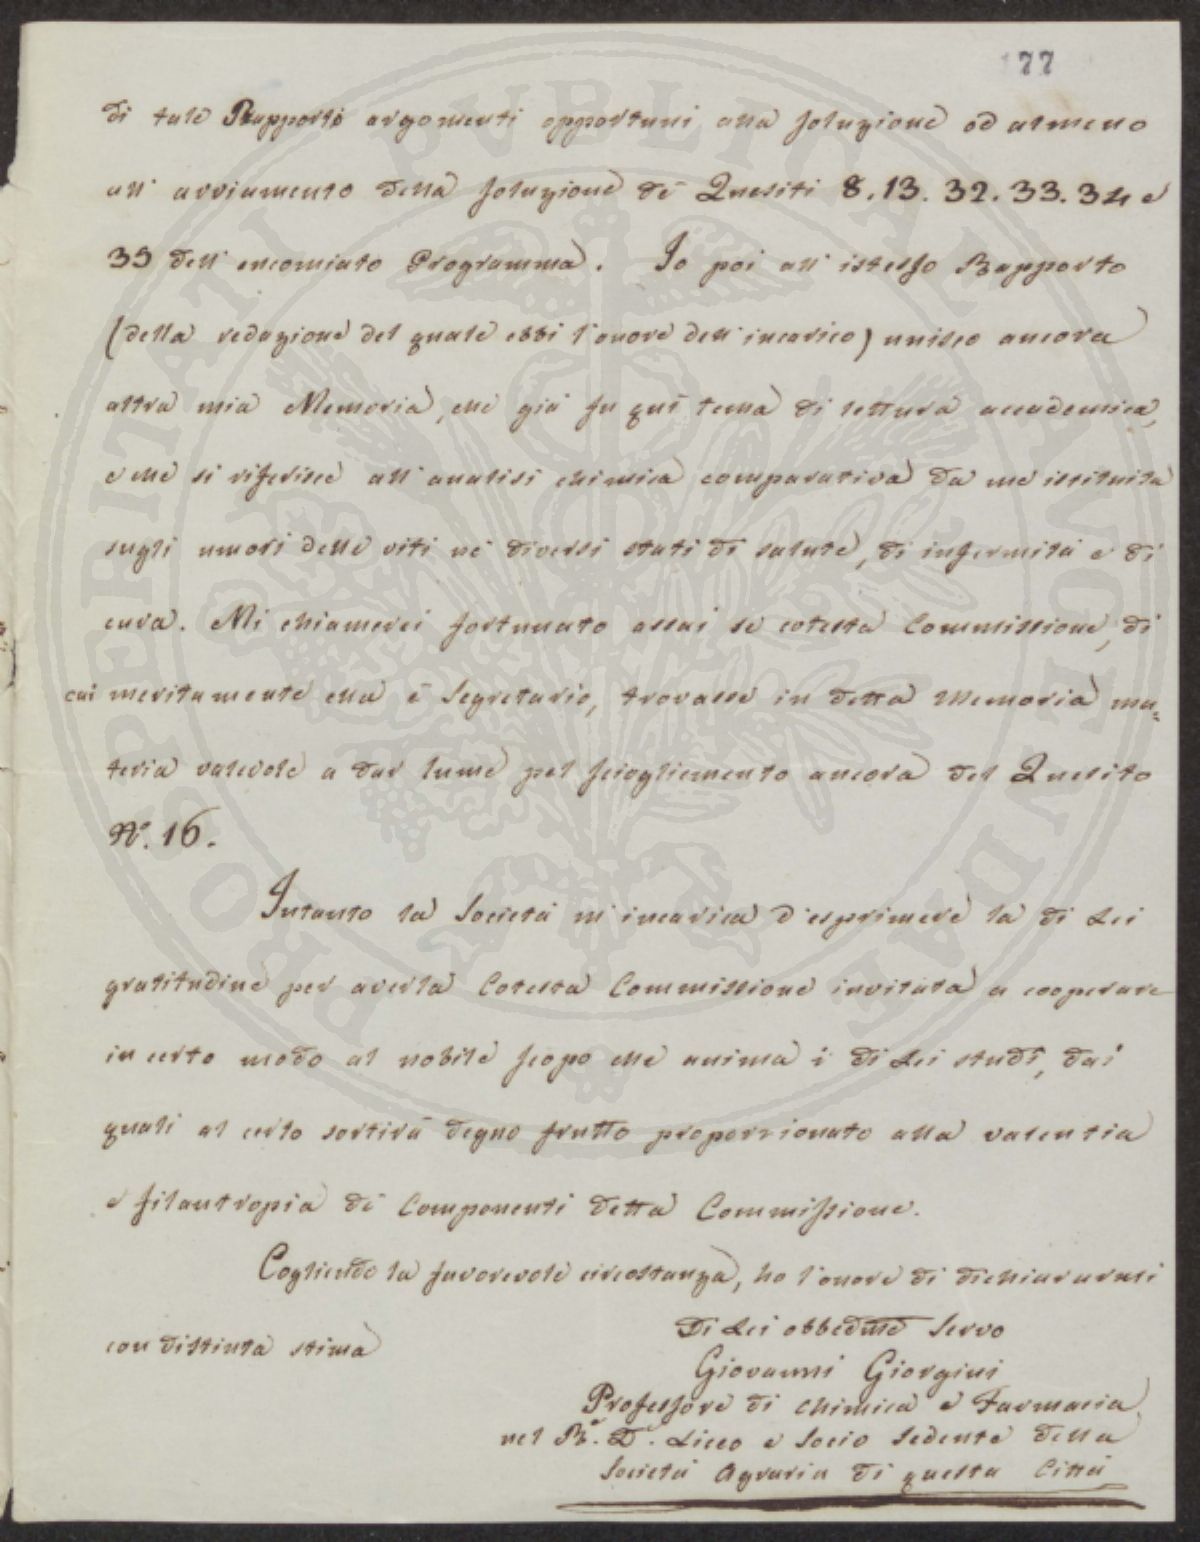 77
di tale Rapporto argomenti opportuni alla soluzione od almeno
all' avviamento della soluzione de' Quesiti 8. 13. 32. 33. 34 e
35 dell' encomiato Programma. Io poi all' istesso Rapporto
(della redazione del quale ebbi l'onore dell' incarico) unisco ancora
altra mia Memoria, che già fu quì tema di lettura accademica,
e che si riferisce all' analisi chimica comparativa da me istituita
sugli umori delle viti ne' diversi stati di salute, di infermità e di
cura. Mi chiamerei fortunato assai se cotesta Commissione, di
cui meritamente ella è Segretario, trovasse in detta Memoria ma=
teria valevole a dar lume pel scioglimento ancora del Quesito
N°. 16.
Intanto la Società m' incarica d'esprimere la di Lei
gratitudine per averla Cotesta Commissione invitata a cooperare
in certo modo al nobile scopo che anima i di Lei studî, dai
quali al certo sortirà degno frutto proporzionato alla valentia
e filantropia de' Componenti detta Commissione.
Cogliendo la favorevole circostanza, ho l'onore di dichiararmi
con distinta stima
Di Lei obbedmo Servo
Giovanni Giorgini
Professore di Chimica e Farmacia
nel R°. D. Liceo e Socio Sedente della
Società Agraria di questa Città
PROSPERITATI PUBLICAE AUGENDAE